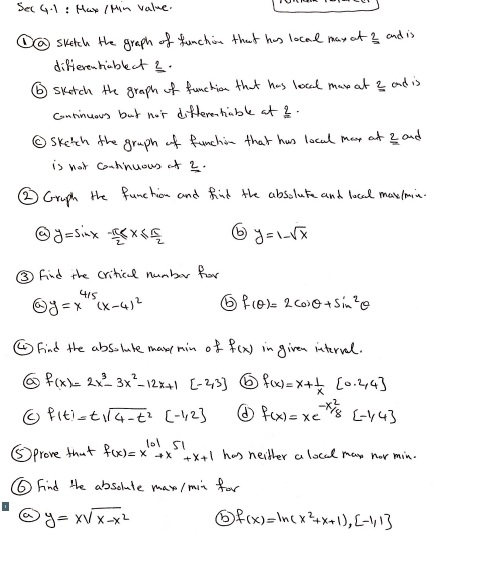 Sec 4.1 : Max / Min value.
① ⓐ Sketch the graph of function that has local max at 2 and is
differentiable at 2.
ⓑ Sketch the graph of function that has local max at 2 and is
continuous but not differentiable at 2.
ⓒ Sketch the graph of function that has local max at 2 and
is not continuous at 2.
② Graph the function and find the absolute and local max/min.
ⓐ y = sinx -π/2 ≤ x ≤ π/2 ⓑ y = 1-√x
③ Find the critical number for
ⓐ y = x^{4/5} (x-4)^2 ⓑ f(θ) = 2cosθ + sin^2θ
④ Find the absolute max/min of f(x) in given interval.
ⓐ f(x) = 2x^3 - 3x^2 - 12x + 1 [-2,3] ⓑ f(x) = x + 1/x [0.2,4]
ⓒ f(t) = t√(4-t^2) [-1,2] ⓓ f(x) = xe^{-x^2/8} [-1,4]
⑤ Prove that f(x) = x^{101} + x^{51} + x + 1 has neither a local max nor min.
⑥ Find the absolute max/min for
ⓐ y = x√(x-x^2) ⓑ f(x) = ln(x^2+x+1), [-1,1]